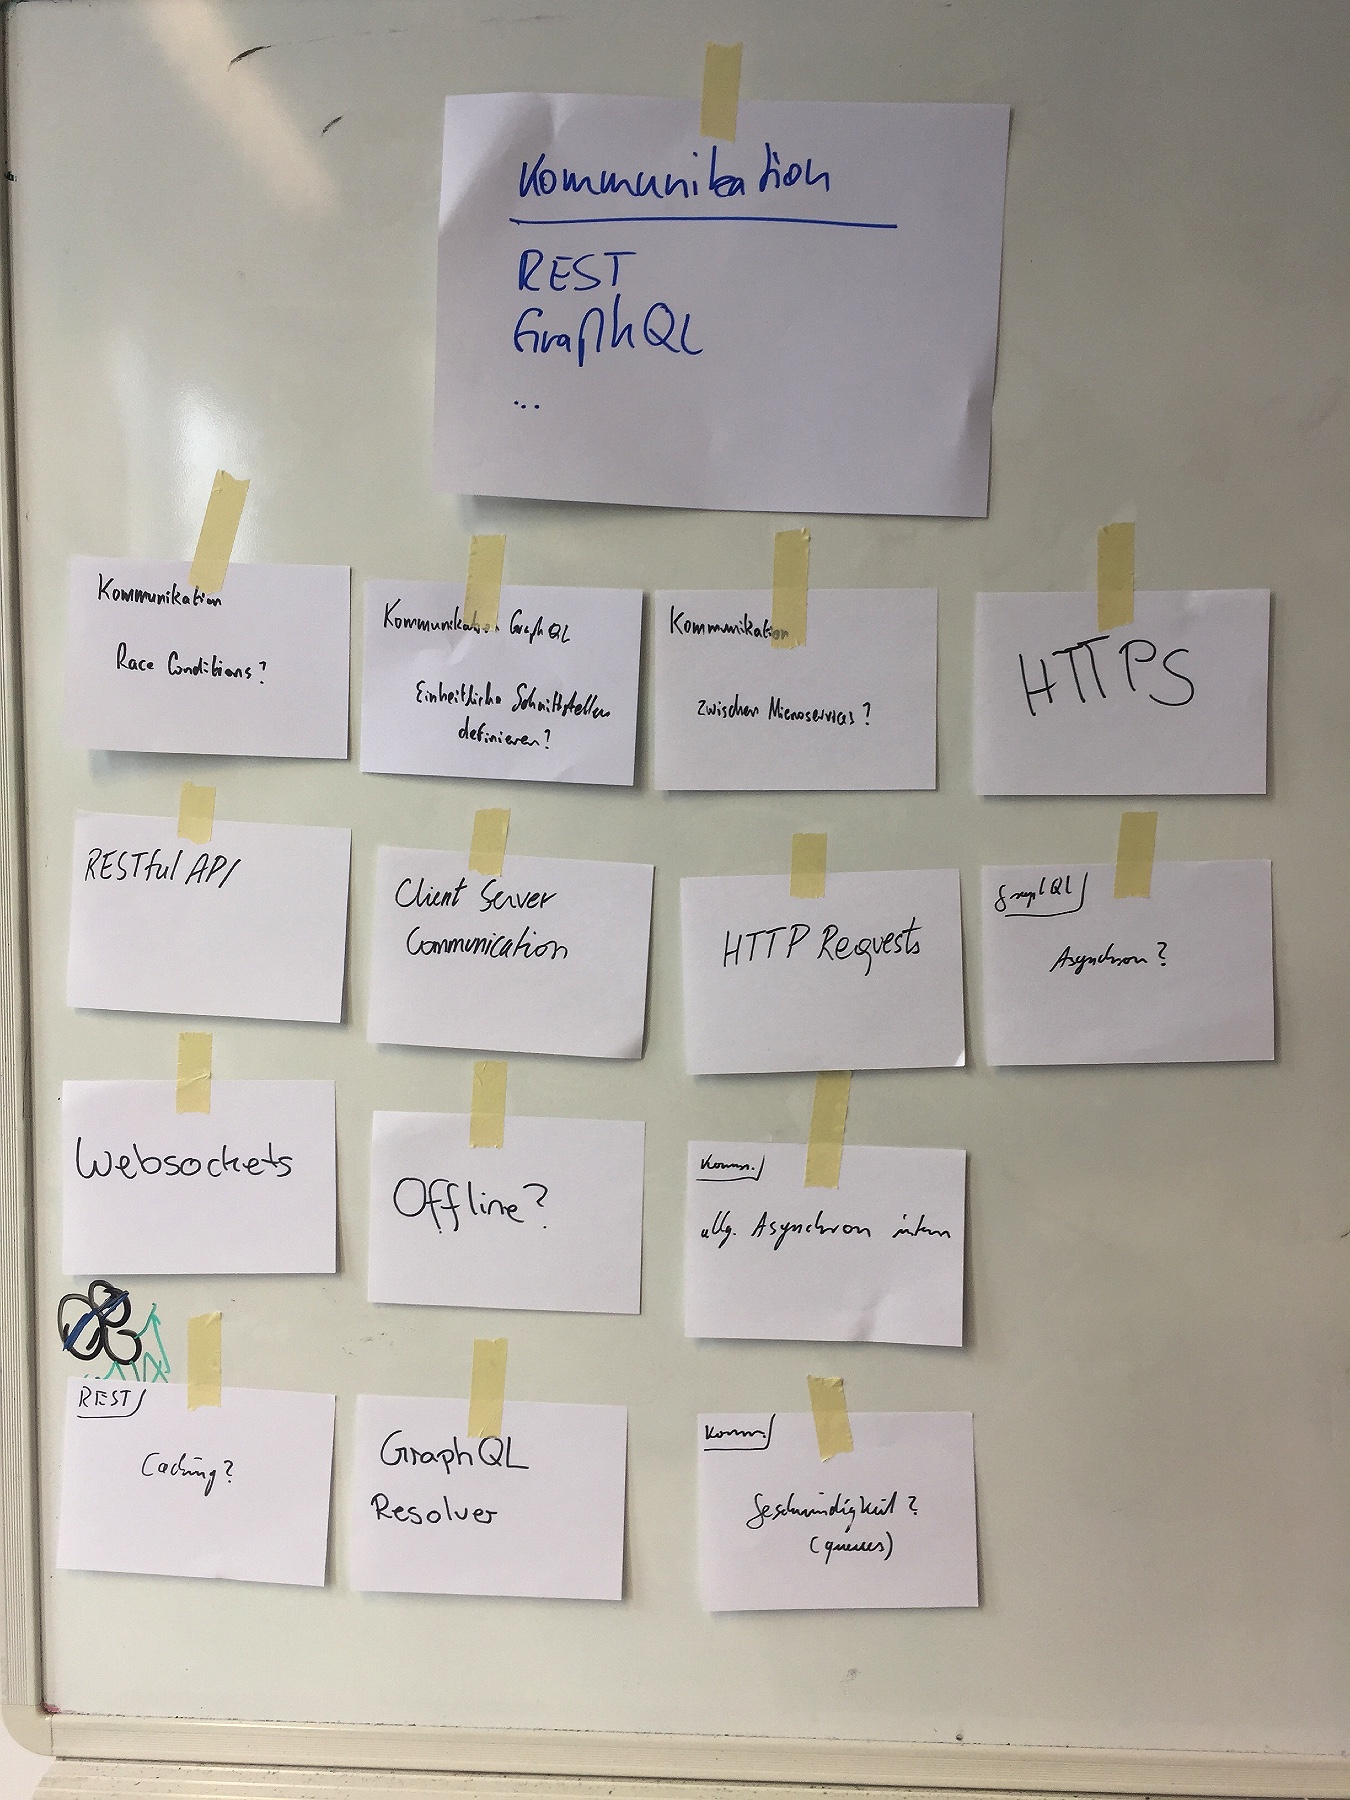 Kommunikation
REST
GraphQL
...
Kommunikation
Race Conditions?
Kommunikation GraphQL
Einheitliche Schnittstellen
definieren?
Kommunikation
zwischen Microservices?
HTTPS
RESTful API
Client Server
Communication
HTTP Requests
GraphQL
Asynchron?
Websockets
Offline?
Komm.
allg. Asynchron intern
REST
Caching?
GraphQL
Resolver
Komm.
Geschwindigkeit?
(queues)